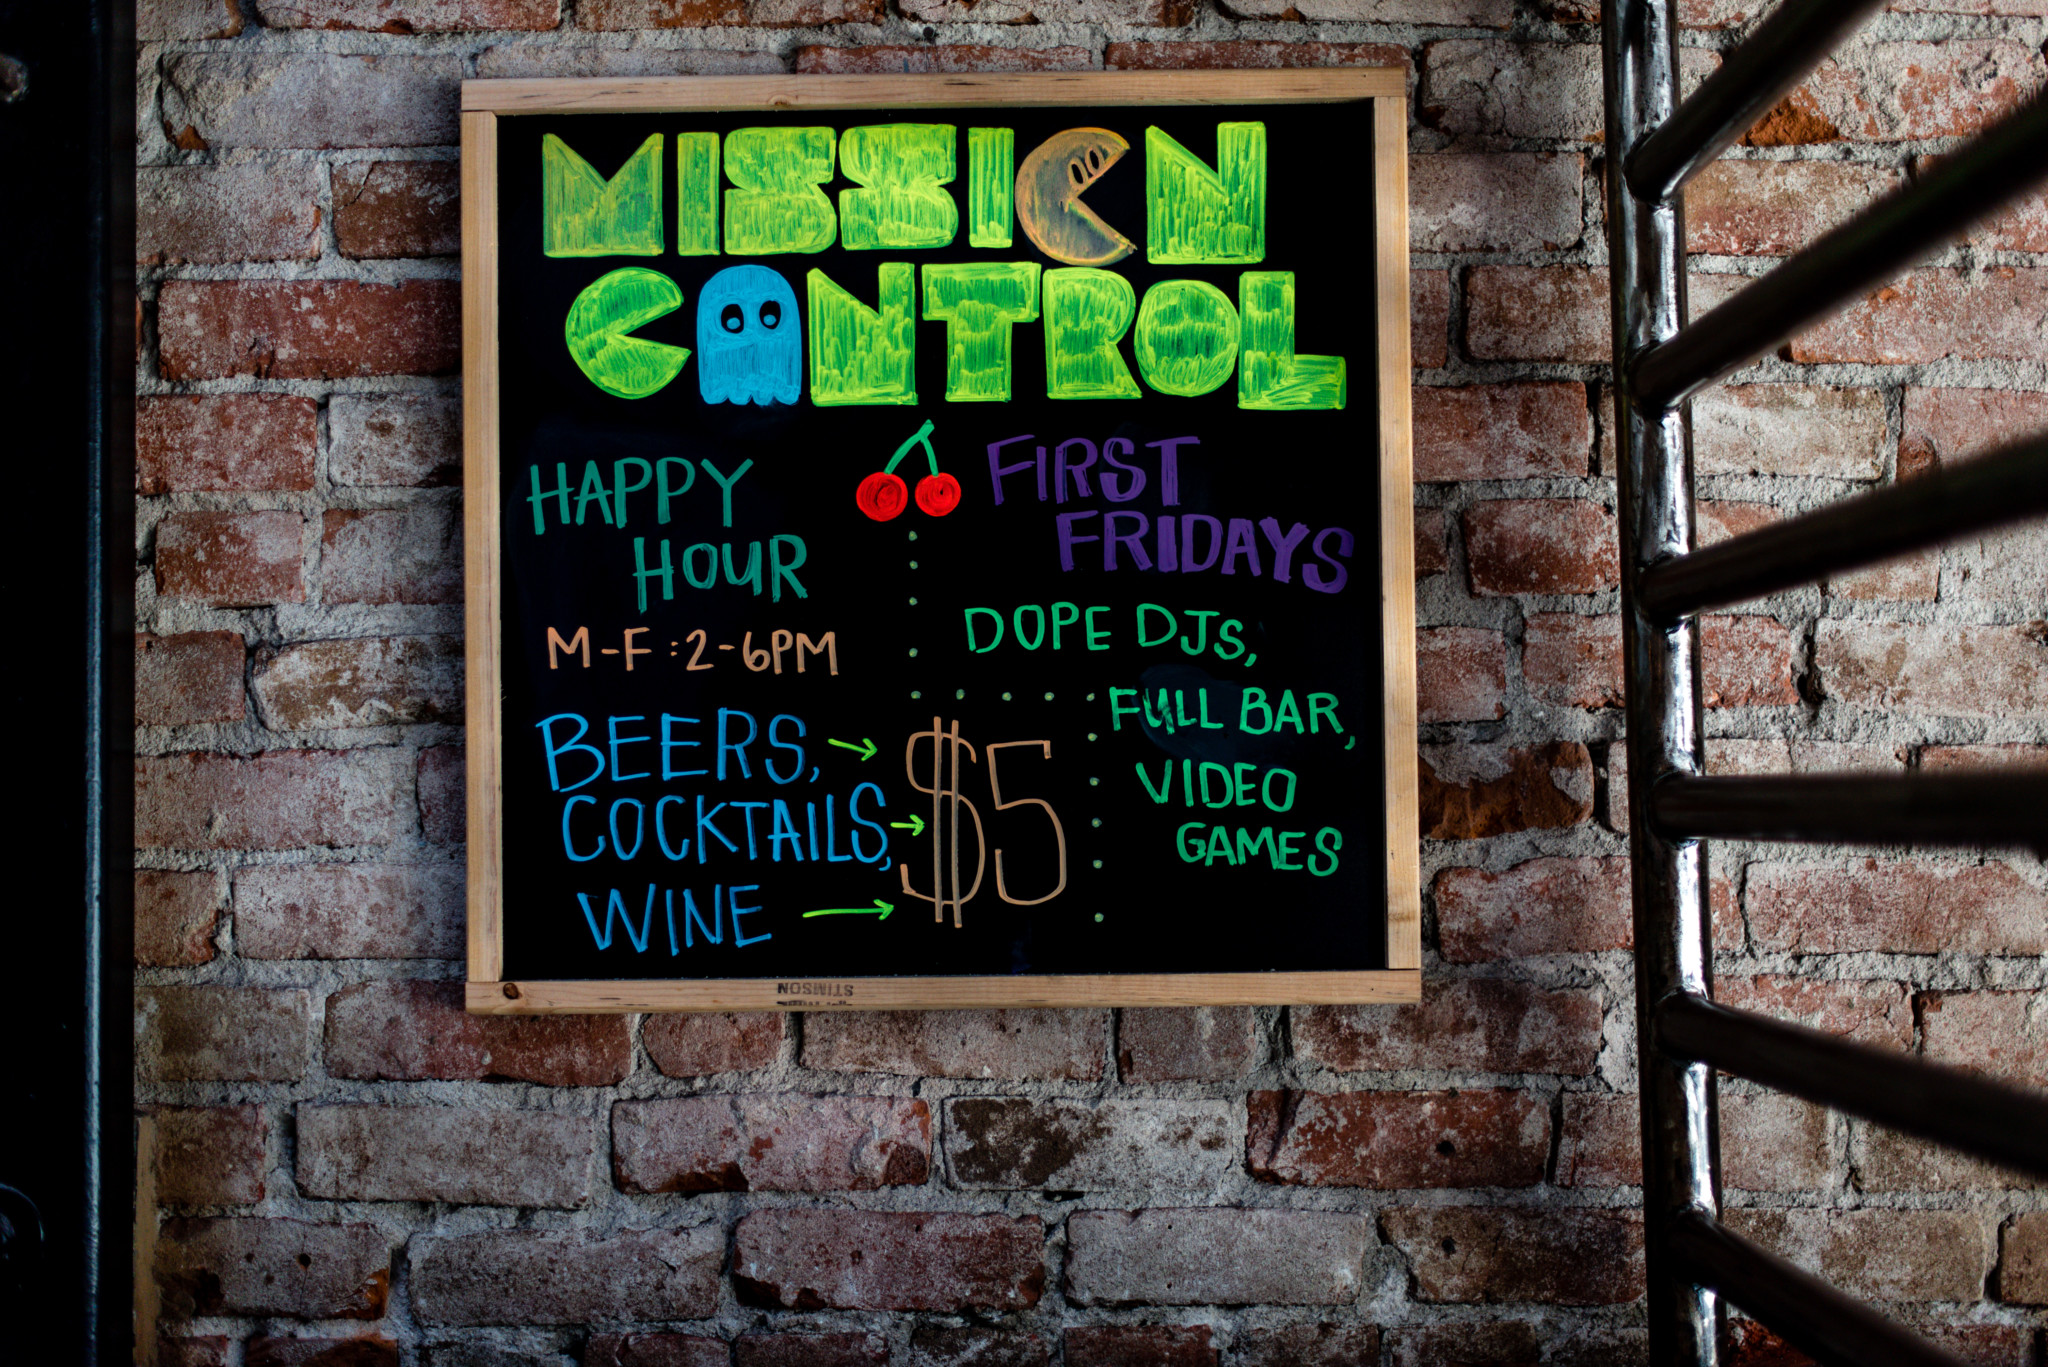 MISSION
CONTROL
HAPPY
HOUR
M-F:2-6PM
BEERS,
COCKTAILS,
WINE
$5
FIRST
FRIDAYS
DOPE DJS,
FULL BAR,
VIDEO
GAMES
STIMSON